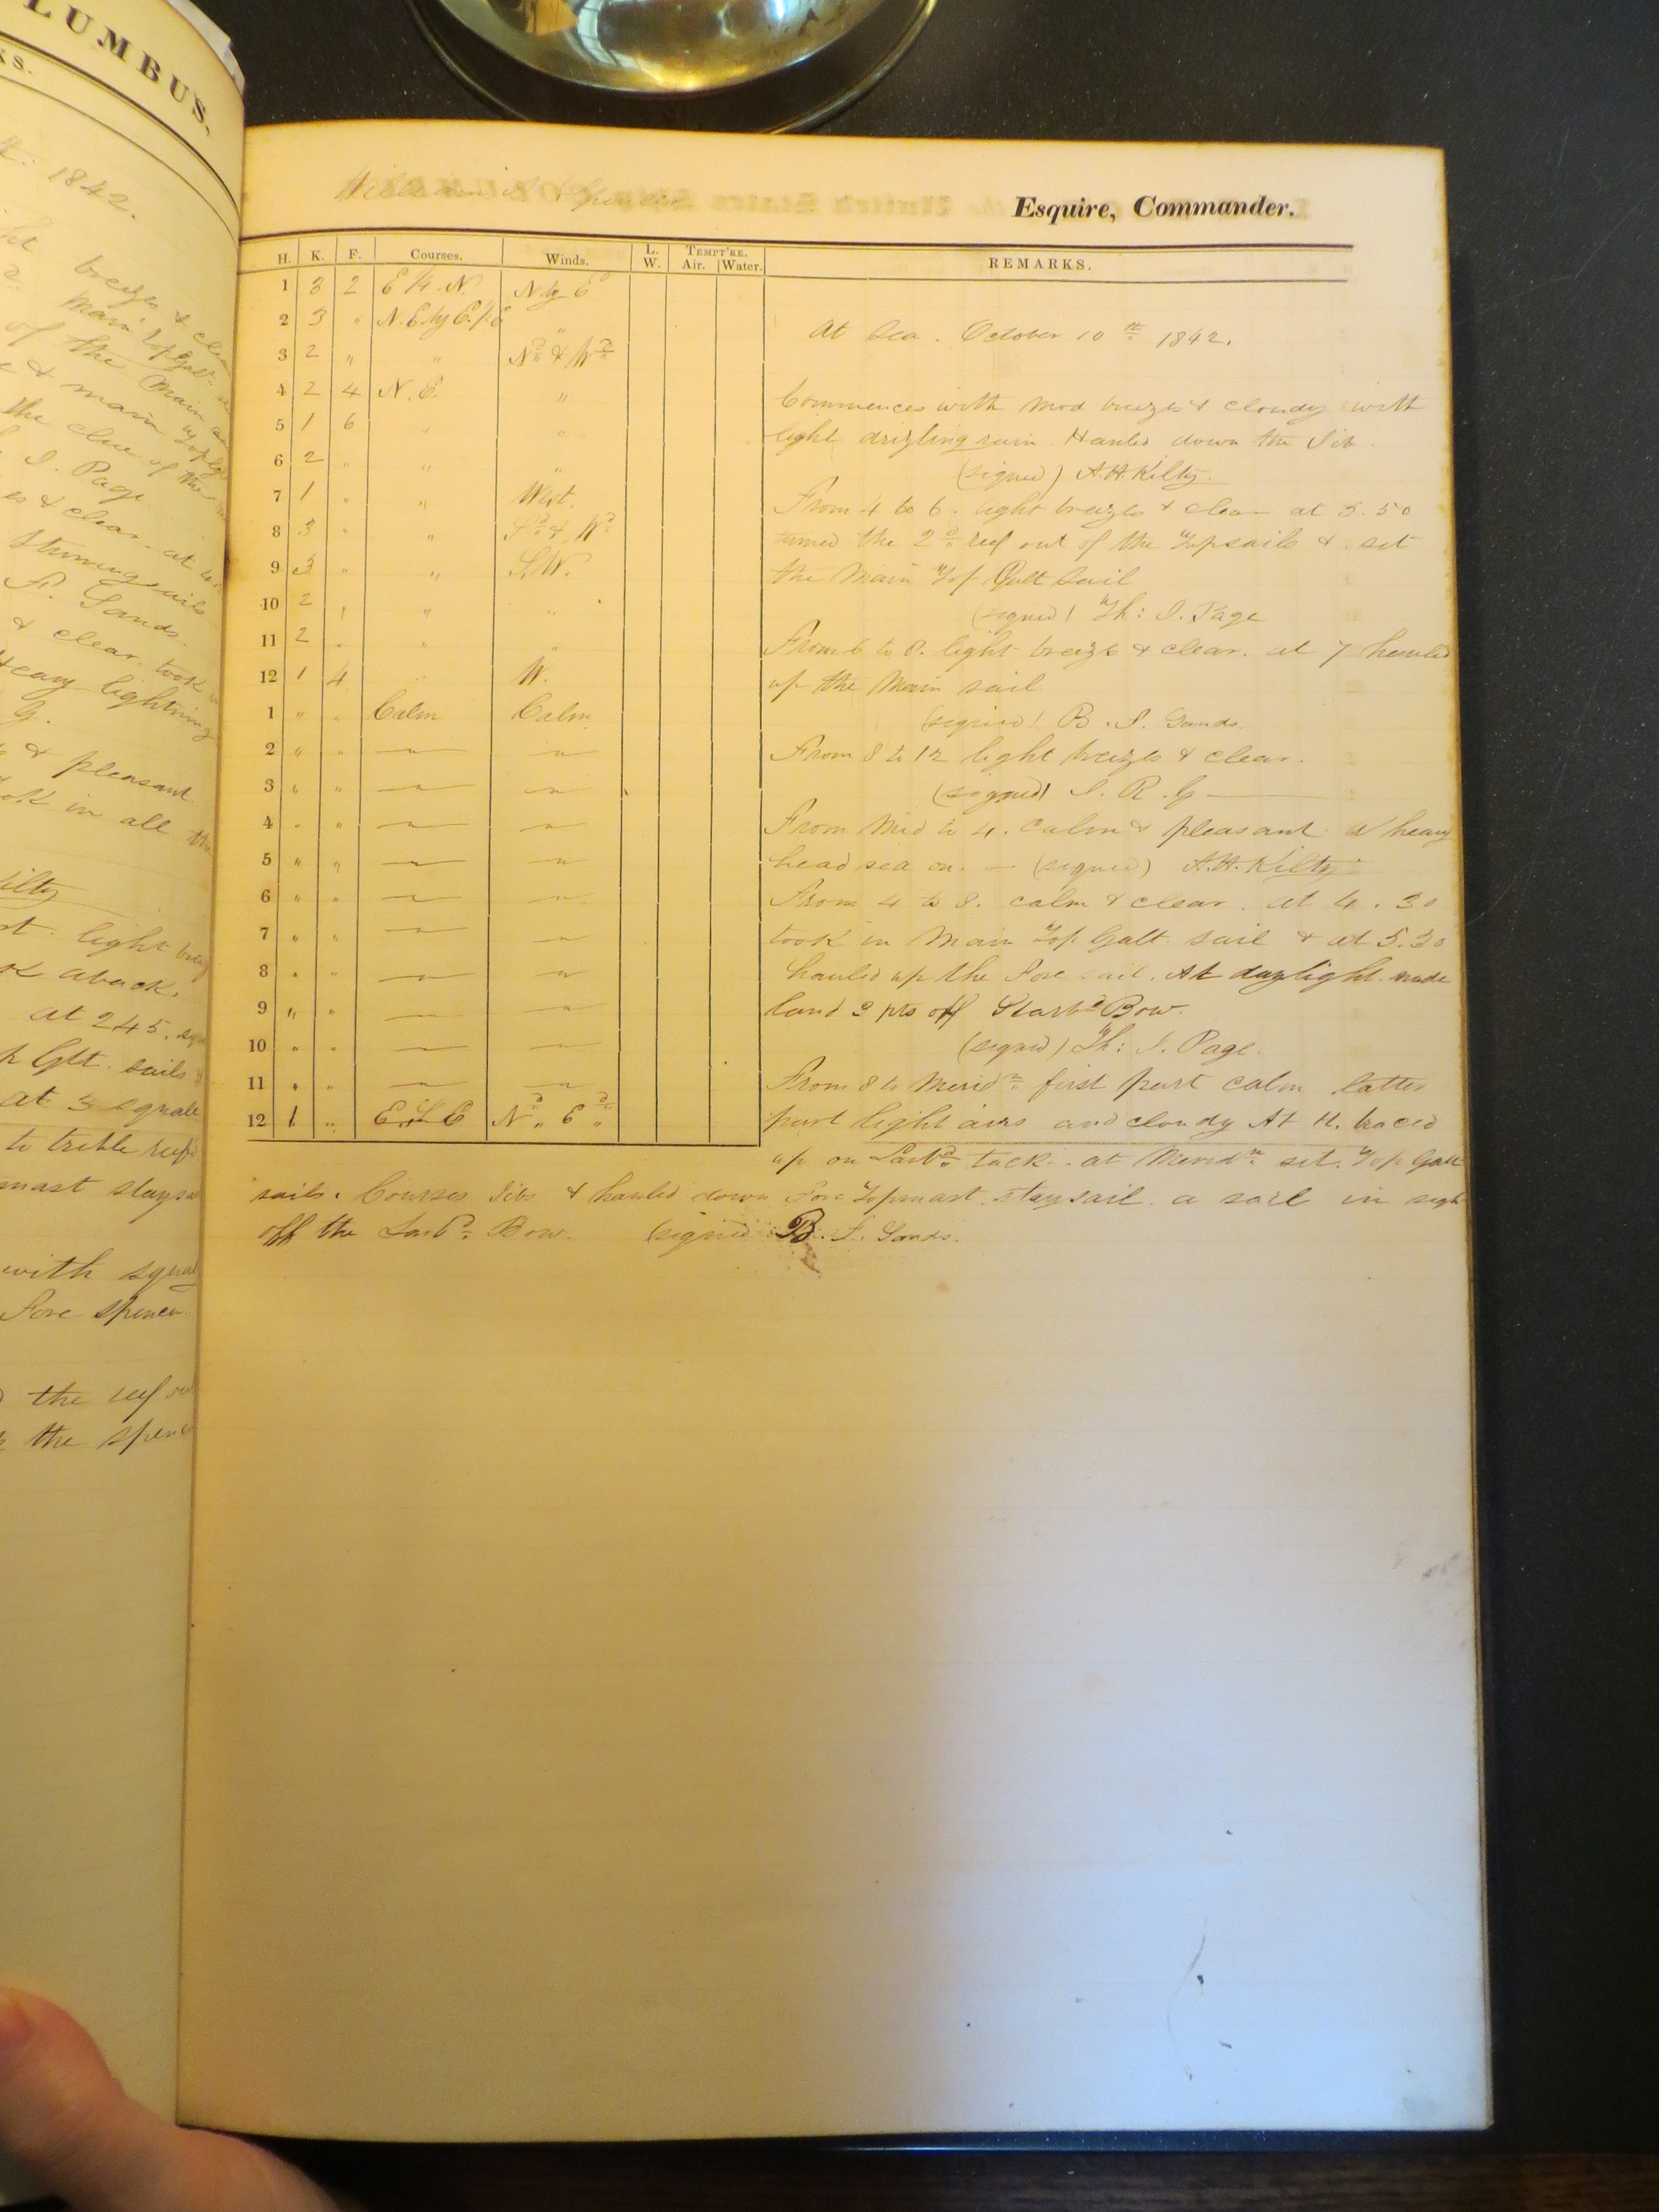 LUMBUS.
KS.
1842.
breezes & clea
Main TopGalt
of the Main
& main
the clue of the
J. Page
es & clear. at 4.
Studdingsails
F. Sands.
& clear. took
Heavy lightning
G.
& pleasant.
ok in all the
ilty
light breez
k aback.
at 245. squ
Glt. sails &
at 3 squall
to treble reef
mast staysa
with squal
Fore spencer
the reef ou
the spenc
William
Esquire, Commander.
H. K. F. Courses. Winds. L. W. Tempt're. Air. Water. REMARKS.
1 3 2 E ¼ N N by E
2 3 " N.E. by E. ½ E "
At Sea. October 10th 1842.
3 2 " " Nd & Wd
4 2 4 N.E. "
Commences with mod breezes & cloudy with
5 1 6 " "
light drizling rain. Hauled down the Jib.
6 2 " " "
(signed) A.H. Kilty.
7 1 " " West.
From 4 to 6. light breezes & clear at 5.50
8 3 " " Sd & Wd
turned the 2d reef out of the Topsails & set
9 3 " " S.W.
the Main Top Gallt Sail
10 2 " " "
(signed) Th: J. Page
11 2 " " "
From 6 to 8. light breezes & clear. at 7 hauled
12 1 4 " W.
up the Main sail
1 " " Calm Calm
(signed) B. F. Sands.
2 " " " "
From 8 to 12 light breezes & clear.
3 " " " "
(signed) J. R. G
4 " " " "
From Mid to 4. calm & pleasant. A heavy
5 " " " "
head sea on. — (signed) A.H. Kilty
6 " " " "
From 4 to 8. calm & clear. at 4.30
7 " " " "
took in Main Top Gallt. sail & at 5.30
8 " " " "
hauled up the Fore sail. At daylight made
9 " " " "
land 2 pts off Starbd Bow.
10 " " " "
(signed) Th: J. Page.
11 " " " "
From 8 to Meridn first part calm latter
12 1 " E.S.E Nd " Ed "
part light airs and cloudy At 11. braced
up on Larbd tack. at Meridn set. Top Gallt
sails. Courses Jibs & hauled down Fore Topmast staysail. a sail in sigh
off the Larbd Bow. (signed B. F. Sands.